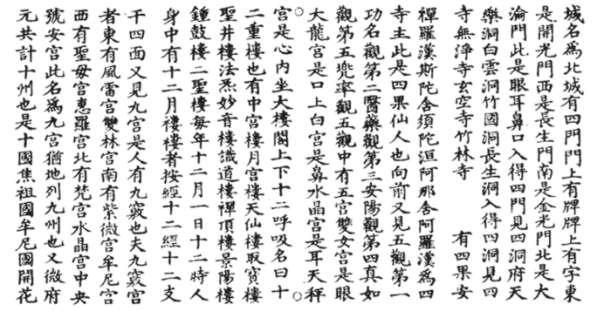 城名為北城有四門門上有牌牌上有字東
是開光門西是長生門南是金光門北是大
淪門此是眼耳鼻口入得四門見四洞府天
樂洞白雲洞竹國洞長生洞入得四洞見四
寺無淨寺玄空寺竹林寺 有四果安
禪羅漢斯陀含須陀洹阿那含阿羅漢為四
寺主此是四果仙人也向前又見五觀第一
功名觀第二醫藥觀第三安陽觀第四真如
觀第五兜率觀五觀中有五宮雙女宮是眼
大龍宮是口上白宮是鼻水晶宮是耳天秤
宮是心內坐大樓閣上下十二呼吸名曰十
二重樓也有中宮樓月宮樓天仙樓取寶樓
聖井樓法炁妙音樓識道樓禪頂樓景陽樓
鍾鼓樓二聖樓每年十二月一日十二時人
身中有十二月樓樓者按經十二經十二支
干四面又見九宮是人有九竅也夫九竅宮
者東有風雷宮雙林宮南有紫微宮牟尼宮
西有聖母宮惠羅宮北有梵宮水晶宮中央
號安宮此名為九宮猶地列九州也又微府
元共計十州也是十國焦祖國牟尼國開花